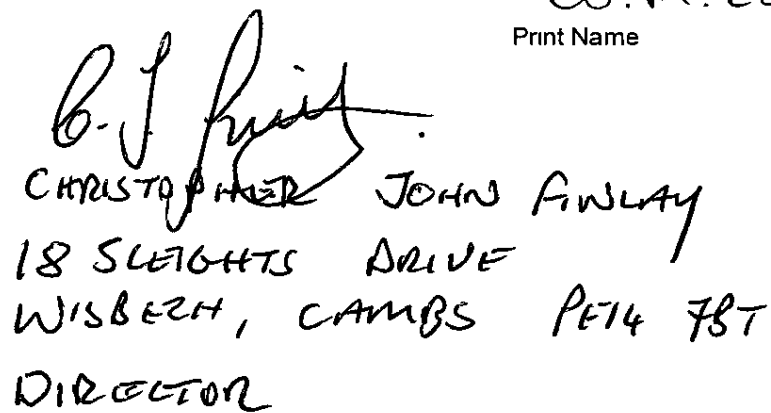 Print Name
CHRISTOPHER JOHN FINLAY
18 SLEIGHTS DRIVE
WISBECH, CAMBS PE14 7BT
DIRECTOR